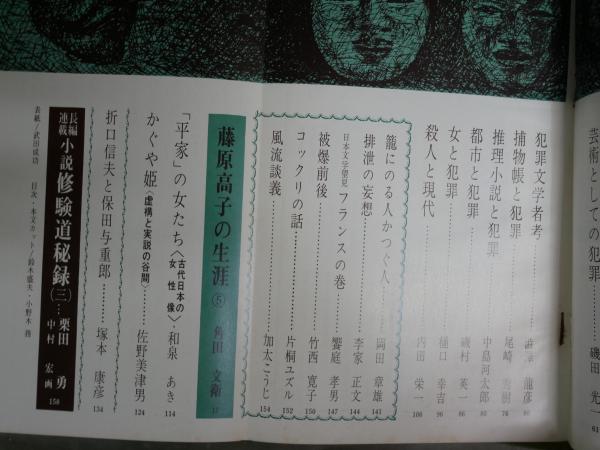 芸術としての犯罪……磯田 光一 61
犯罪文学者考……龍彦
捕物帳と犯罪……尾崎 秀樹 76
推理小説と犯罪……中島河太郎
都市と犯罪……磯村 英一 86
女と犯罪……樋口 幸吉 96
殺人と現代……内田 栄一 106
籠にのる人かつぐ人……岡田 章雄 141
排泄の妄想……李家 正文 144
日本文学望見 フランスの巻……饗庭 孝男 147
被爆前後……竹西 寛子 150
コックリの話……片桐ユズル 152
風流談義……加太こうじ 154
藤原高子の生涯⑤ 角田 文衛
「平家」の女たち〈古代日本の女性像〉・和泉 あき 114
かぐや姫〈虚構と実説の谷間〉……佐野美津男 124
折口信夫と保田与重郎……塚本 康彦 134
長編連載小説 修験道秘録(三)…栗田 勇 中村 宏 画 158
表紙/武田成功
目次・本文カット/鈴木盛夫・小野木